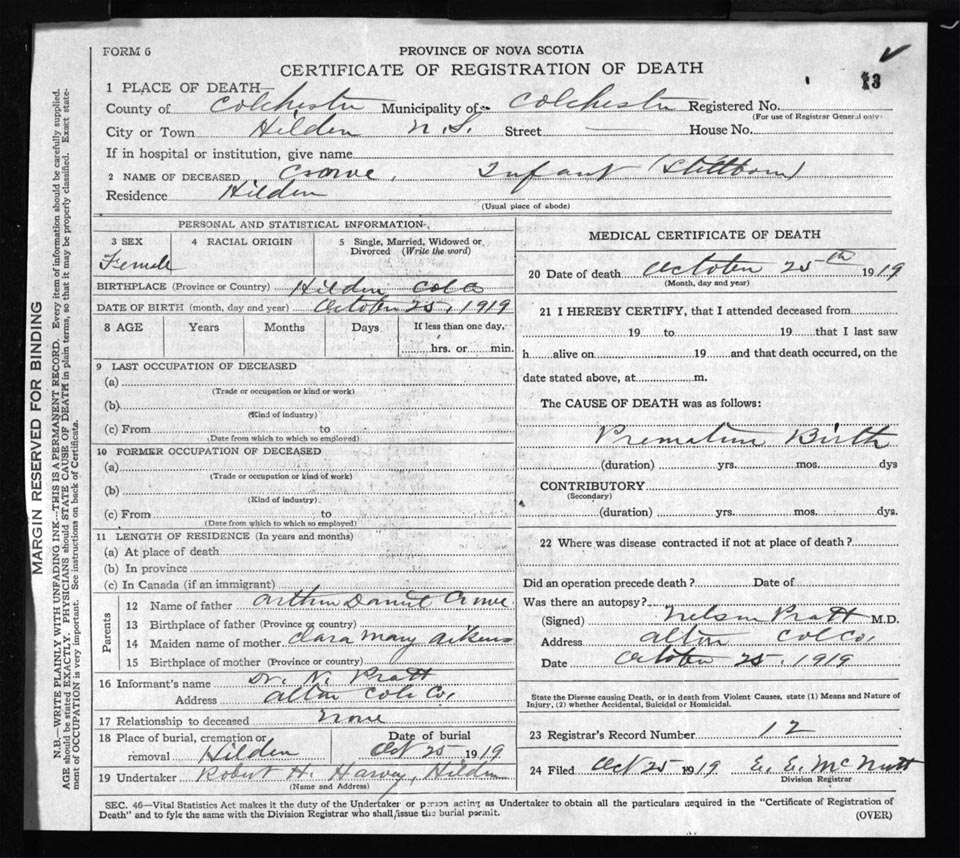 FORM 6
PROVINCE OF NOVA SCOTIA
CERTIFICATE OF REGISTRATION OF DEATH
13
1 PLACE OF DEATH—
County of Colchester Municipality of Colchester Registered No.
(For use of Registrar General only)
City or Town Hilden N.S. Street — House No.
If in hospital or institution, give name
2 NAME OF DECEASED Crowe, Infant (Stillborn)
Residence Hilden
(Usual place of abode)
PERSONAL AND STATISTICAL INFORMATION
3 SEX 4 RACIAL ORIGIN 5 Single, Married, Widowed or Divorced (Write the word)
Female
BIRTHPLACE (Province or Country) Hilden Col Co
DATE OF BIRTH (month, day and year) October 25, 1919
8 AGE Years Months Days If less than one day,
hrs. or min.
9 LAST OCCUPATION OF DECEASED
(a)
(Trade or occupation or kind or work)
(b)
(Kind of industry)
(c) From to
(Date from which to which so employed)
10 FORMER OCCUPATION OF DECEASED
(a)
(Trade or occupation or kind of work)
(b)
(Kind of industry)
(c) From to
(Date from which to which so employed)
11 LENGTH OF RESIDENCE (In years and months)
(a) At place of death
(b) In province
(c) In Canada (if an immigrant)
Parents
12 Name of father Arthur Daniel Crowe
13 Birthplace of father (Province or country)
14 Maiden name of mother Clara Mary Aikens
15 Birthplace of mother (Province or country)
16 Informant's name Dr. N. Pratt
Address Alton Col. Co.
17 Relationship to deceased None
18 Place of burial, cremation or removal Hilden Date of burial Oct 25 1919
19 Undertaker Robert H. Harvey, Hilden
(Name and Address)
MEDICAL CERTIFICATE OF DEATH
20 Date of death October 25th 1919
(Month, day and year)
21 I HEREBY CERTIFY, that I attended deceased from
19 to 19 that I last saw
h alive on 19 and that death occurred, on the
date stated above, at m.
The CAUSE OF DEATH was as follows:
Premature Birth
(duration) yrs. mos. dys
CONTRIBUTORY
(Secondary)
(duration) yrs. mos. dys.
22 Where was disease contracted if not at place of death?
Did an operation precede death? Date of
Was there an autopsy?
(Signed) Nelson Pratt M.D.
Address Alton Col Co.
Date October 25, 1919
State the Disease causing Death, or in death from Violent Causes, state (1) Means and Nature of
Injury, (2) whether Accidental, Suicidal or Homicidal.
23 Registrar's Record Number 12
24 Filed Oct 25 1919 E. E. McNutt
Division Registrar
SEC. 46—Vital Statistics Act makes it the duty of the Undertaker or person acting as Undertaker to obtain all the particulars required in the "Certificate of Registration of
Death" and to fyle the same with the Division Registrar who shall issue the burial permit.
(OVER)
MARGIN RESERVED FOR BINDING
N.B.—WRITE PLAINLY WITH UNFADING INK—THIS IS A PERMANENT RECORD. Every item of information should be carefully supplied.
AGE should be stated EXACTLY. PHYSICIANS should STATE CAUSE OF DEATH in plain terms, so that it may be properly classified. Exact state-
ment of OCCUPATION is very important. See instructions on back of Certificate.